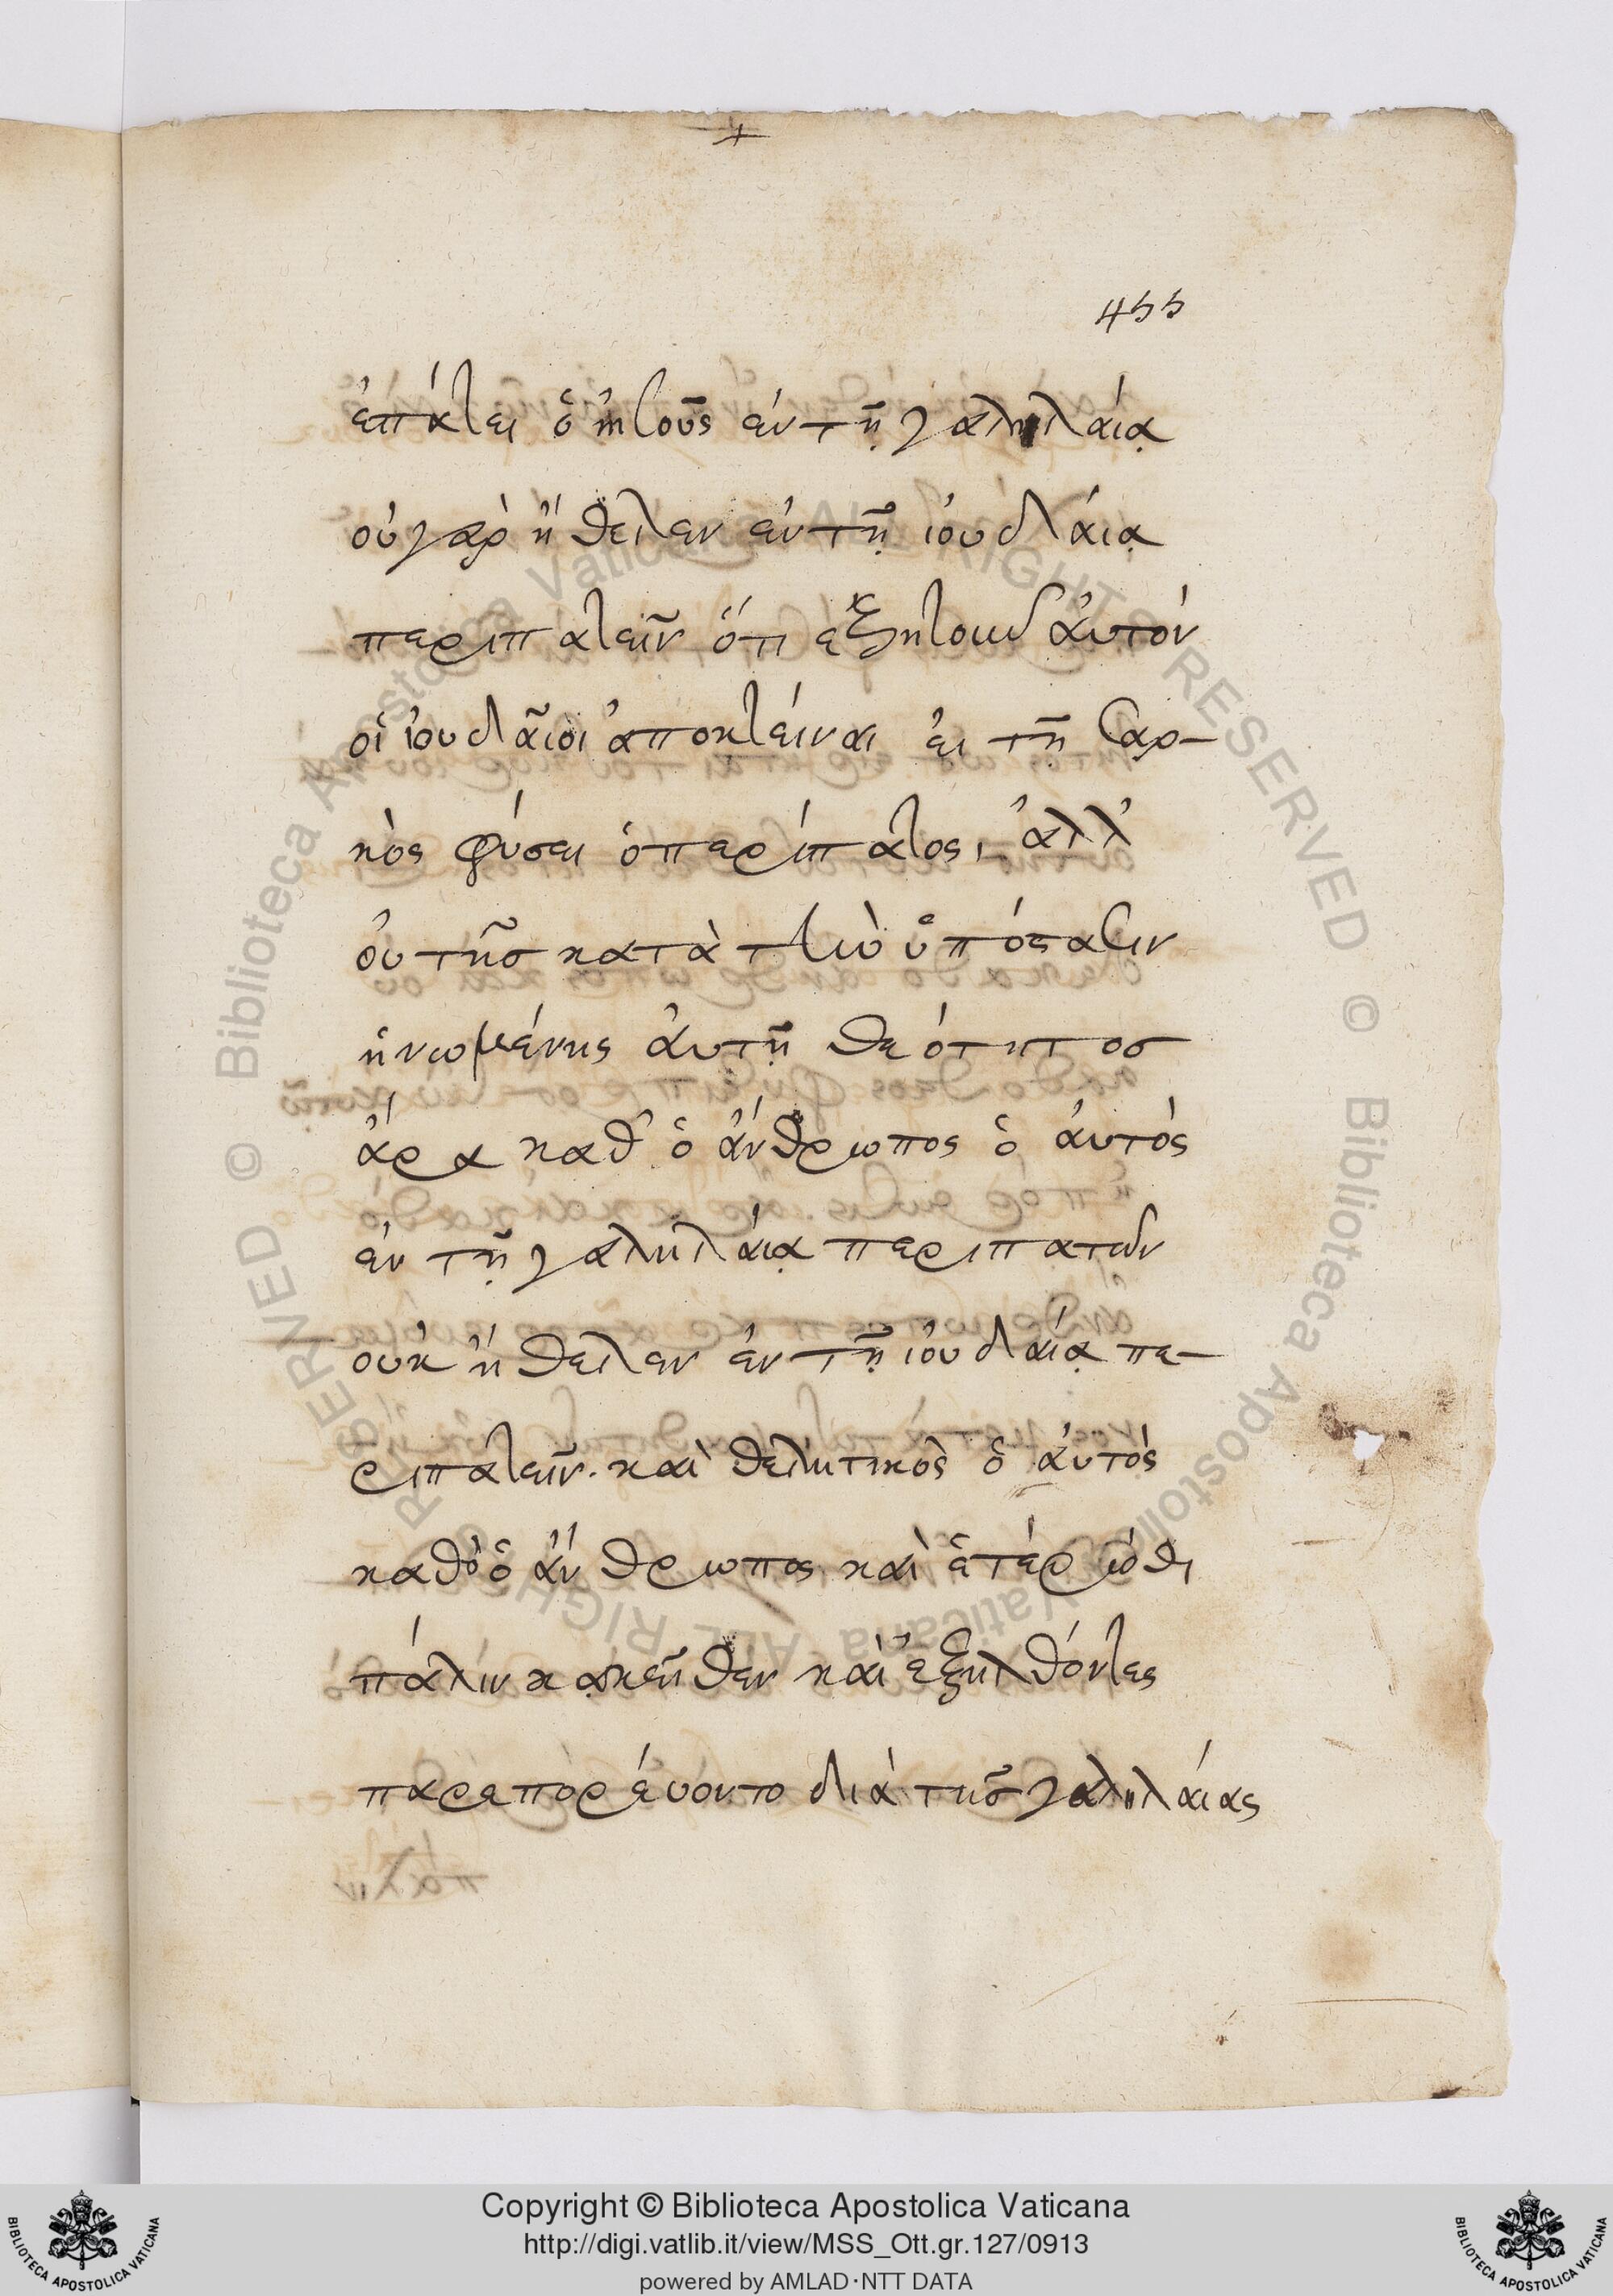 455
ἐπάτει ὁ ἰησοῦς ἐν τῇ γαλιλαίᾳ
οὐ γὰρ ἤθελεν ἐν τῇ ἰουδαίᾳ
περιπατεῖν ὅτι ἐζήτουν αὐτὸν
οἱ ἰουδαῖοι ἀποκτεῖναι εἰ τῇ σαρ-
κὸς φύσει ὁ περίπατος, ἀλλ᾽
οὐ τῆς κατὰ τὴν ὑπόστασιν
ἡνωμένης αὐτῇ θεότητος
ἄρα καθ᾽ ὃ ἄνθρωπος ὁ αὐτὸς
ἐν τῇ γαλιλαίᾳ περιπατῶν
οὐκ ἤθελεν ἐν τῇ ἰουδαίᾳ πε-
ριπατεῖν. καὶ θελητικὸς ὁ αὐτὸς
καθ᾽ ὃ ἄνθρωπος καὶ ἑτέρωθι
πάλιν κᾀκεῖθεν καὶ ἐξελθόντες
παρεπορεύοντο διὰ τῆς γαλιλαίας
Copyright © Biblioteca Apostolica Vaticana
http://digi.vatlib.it/view/MSS_Ott.gr.127/0913
powered by AMLAD·NTT DATA
BIBLIOTECA APOSTOLICA VATICANA
BIBLIOTECA APOSTOLICA VATICANA
© Biblioteca Apostolica Vaticana ALL RIGHTS RESERVED © Biblioteca Apostolica Vaticana ALL RIGHTS RESERVED